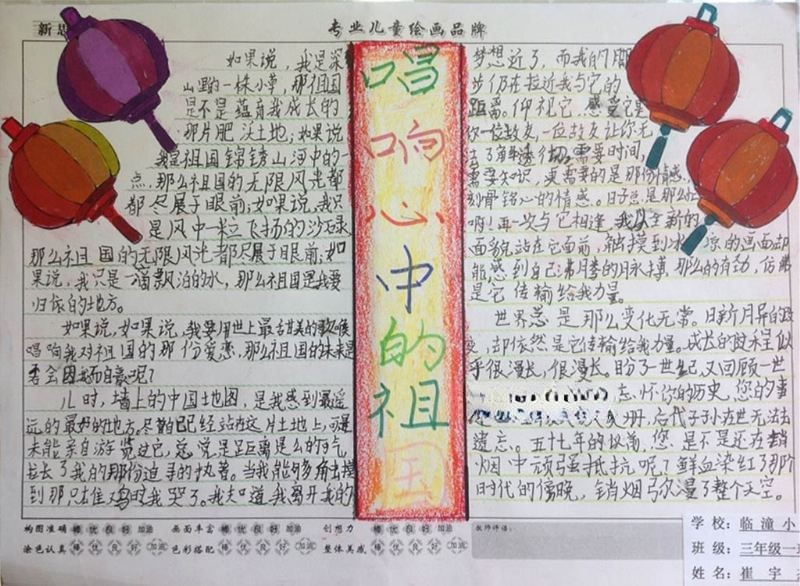 新思
专业儿童绘画品牌
唱响心中的祖国
如果说，我是深
山野的一株小草，那祖国
是不是蕴育我成长的
那片肥沃土地；如果说
我是祖国锦绣山河中的一
点，那么祖国的无限风光都
都尽展于眼前；如果说，我只
是风中一粒飞扬的沙砾，
那么祖国的无限风光都尽展于眼前；如
果说，我只是一滴飘泊的水，那么祖国是我要
归依的地方。
如果说，如果说，我要用世上最甜美的歌喉
唱响我对祖国的那份爱恋，那么祖国的未来是
否会因我而自豪呢？
儿时，墙上的中国地图，是我感到最遥
远的最好的地方，尽管已经站在这片土地上，可
未能亲自游览过它，总觉是距离是么的
拉长了我的那份追寻的执着。当我能够
到那只雄鸡时我哭了。我知道，我离开我的
梦想近了，而我的脚
步仍在拉近我与它的
距离。仰视它，感觉它是
你一位故友，一位故友让你无
需要时间，
需要知识，更需要的是那份情感
刻骨铭心的情感。日子总是那么
啊！再一次与它相逢，我以全新的
面貌站在它面前，触摸到冰凉的画面却
能感到自己沸腾的脉搏，那么的有劲，仿佛
是它传输给我力量。
世界总是那么变化无常。日新月异的
变，却依然是它传输给我力量。成长的过程似
乎很漫长，很漫长。盼了一世纪，又回顾一世
忘怀你的历史，您的事
册，后代子子万世无法去
遗忘。五十七年的 您，是不是还在
烟中顽强抵抗呢？鲜血染红了那个
时代的傍晚，硝烟弥漫了整个天空。
构图准确 棒 优 良 好 加油 画面丰富 棒 优 良 好 加油 创想力 棒 优 良 好 加油 教师评语：
涂色认真 棒 优 良 好 加油 色彩搭配 棒 优 良 好 加油 整体美感 棒 优 良 好 加油
学校：临潼小
班级：三年级一
姓名：崔宇